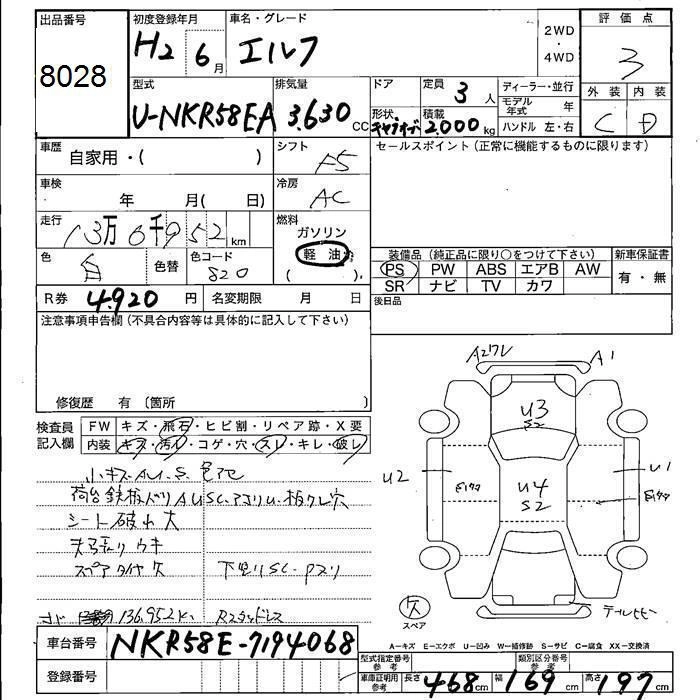 出品番号
8028
初度登録年月
H2 6月
車名・グレード
エルフ
2WD
・
4WD
評価点
3
型式
U-NKR58EA
排気量
3.630 CC
ドア
定員
3人
形状
積載
2.000 kg
ディーラー・並行
モデル年式 年
ハンドル 左・右
外装 内装
C D
車歴
自家用・( )
シフト
F5
セールスポイント(正常に機能するものに限ります)
車検
年 月( 日)
冷房
AC
走行
13万6千952km
燃料
ガソリン
軽油
( )
色
白
色替
色コード
820
装備品(純正品に限り○をつけて下さい)
新車保証書
PS PW ABS エアB AW
SR ナビ TV カワ
有・無
後日品
R券 4.920円
名変期限 月 日
注意事項申告欄(不具合内容等は具体的に記入して下さい)
修復歴 有 〔箇所
検査員
記入欄
FW キズ・飛石・ヒビ割・リペア跡・X要
内装 キズ・汚れ・コゲ・穴・スレ・キレ・破レ
小キズAU.S.色アセ
シート破れ大
スペアタイヤ欠
下廻りSC
136.952K
Rスタッドレス
A1
U3
S2
U4
S2
U2
U1
欠
スペア
A-キズ E-エクボ U-凹み W-補修跡 S-サビ C-腐食 XX-交換済
車台番号
NKR58E-7194068
登録番号
型式指定番号
参考
類別区分番号
参考
車庫証明用
参考
長さ 468cm 幅 169cm 高さ 197cm